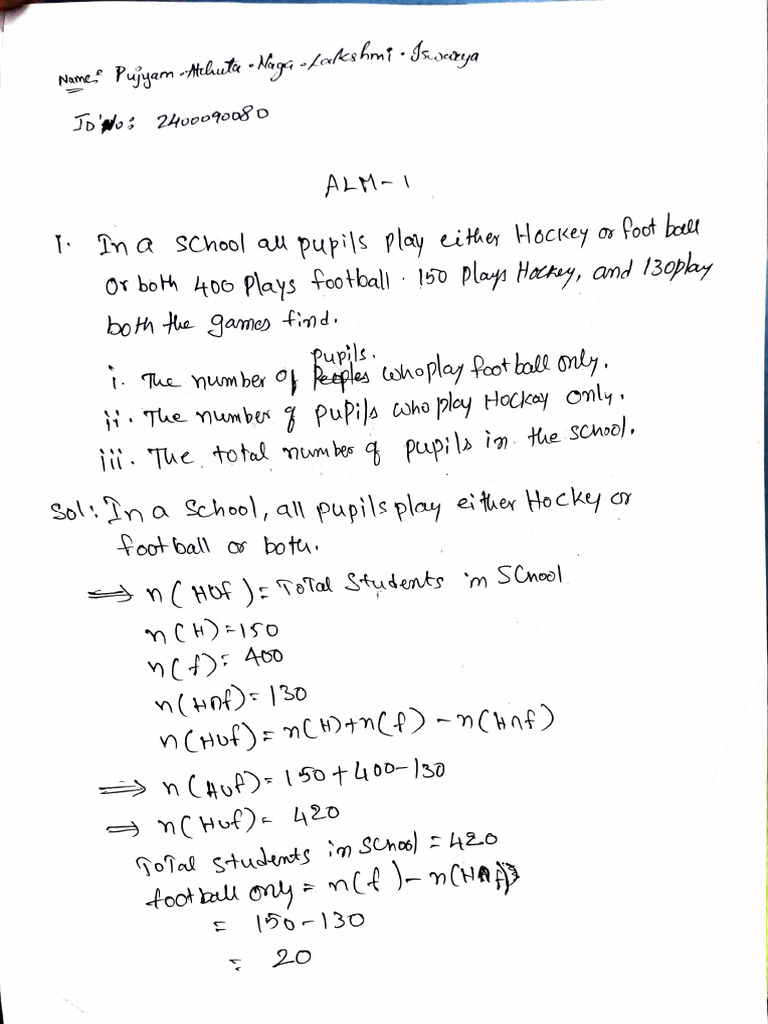 Name: Pujyam-Atchuta-Naga-Lakshmi-Iswarya
ID No: 2400090080
ALM-1
1. In a school all pupils play either Hockey or foot ball
or both 400 plays football. 150 plays Hockey, and 130 play
both the games find.
pupils.
i. The number of Peoples who play foot ball only.
ii. The number of pupils who play Hockay only.
iii. The total number of pupils in the school.
Sol: In a School, all pupils play either Hocky or
foot ball or both.
⟹ n(HUf) = ToTal Students in SChool
n(H) = 150
n(f) = 400
n(H∩f) = 130
n(HUf) = n(H) + n(f) - n(H∩f)
⟹ n(HUf) = 150 + 400 - 130
⟹ n(HUf) = 420
ToTal students in school = 420
foot ball only = n(f) - n(H∩f)
= 150 - 130
= 20